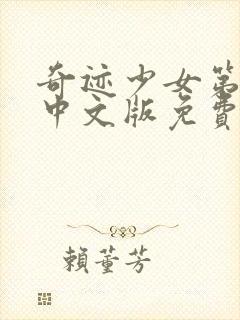 奇迹少女第
中文版免費
賴董芳